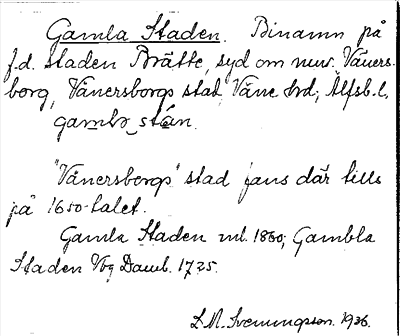 Gamla Staden. Binamn på
f.d. staden Brätte, syd om nuv. Väners-
borg, Vänersborgs stad, Väne hd; Älfsb. l.
gambɔ stán.
"Vänersborgs" stad fans där tills
på 1650-talet.
Gamla Staden utt. 1860; Gambla
Staden Vbg Domb. 1725.
L. M. Svenungsson. 1936.